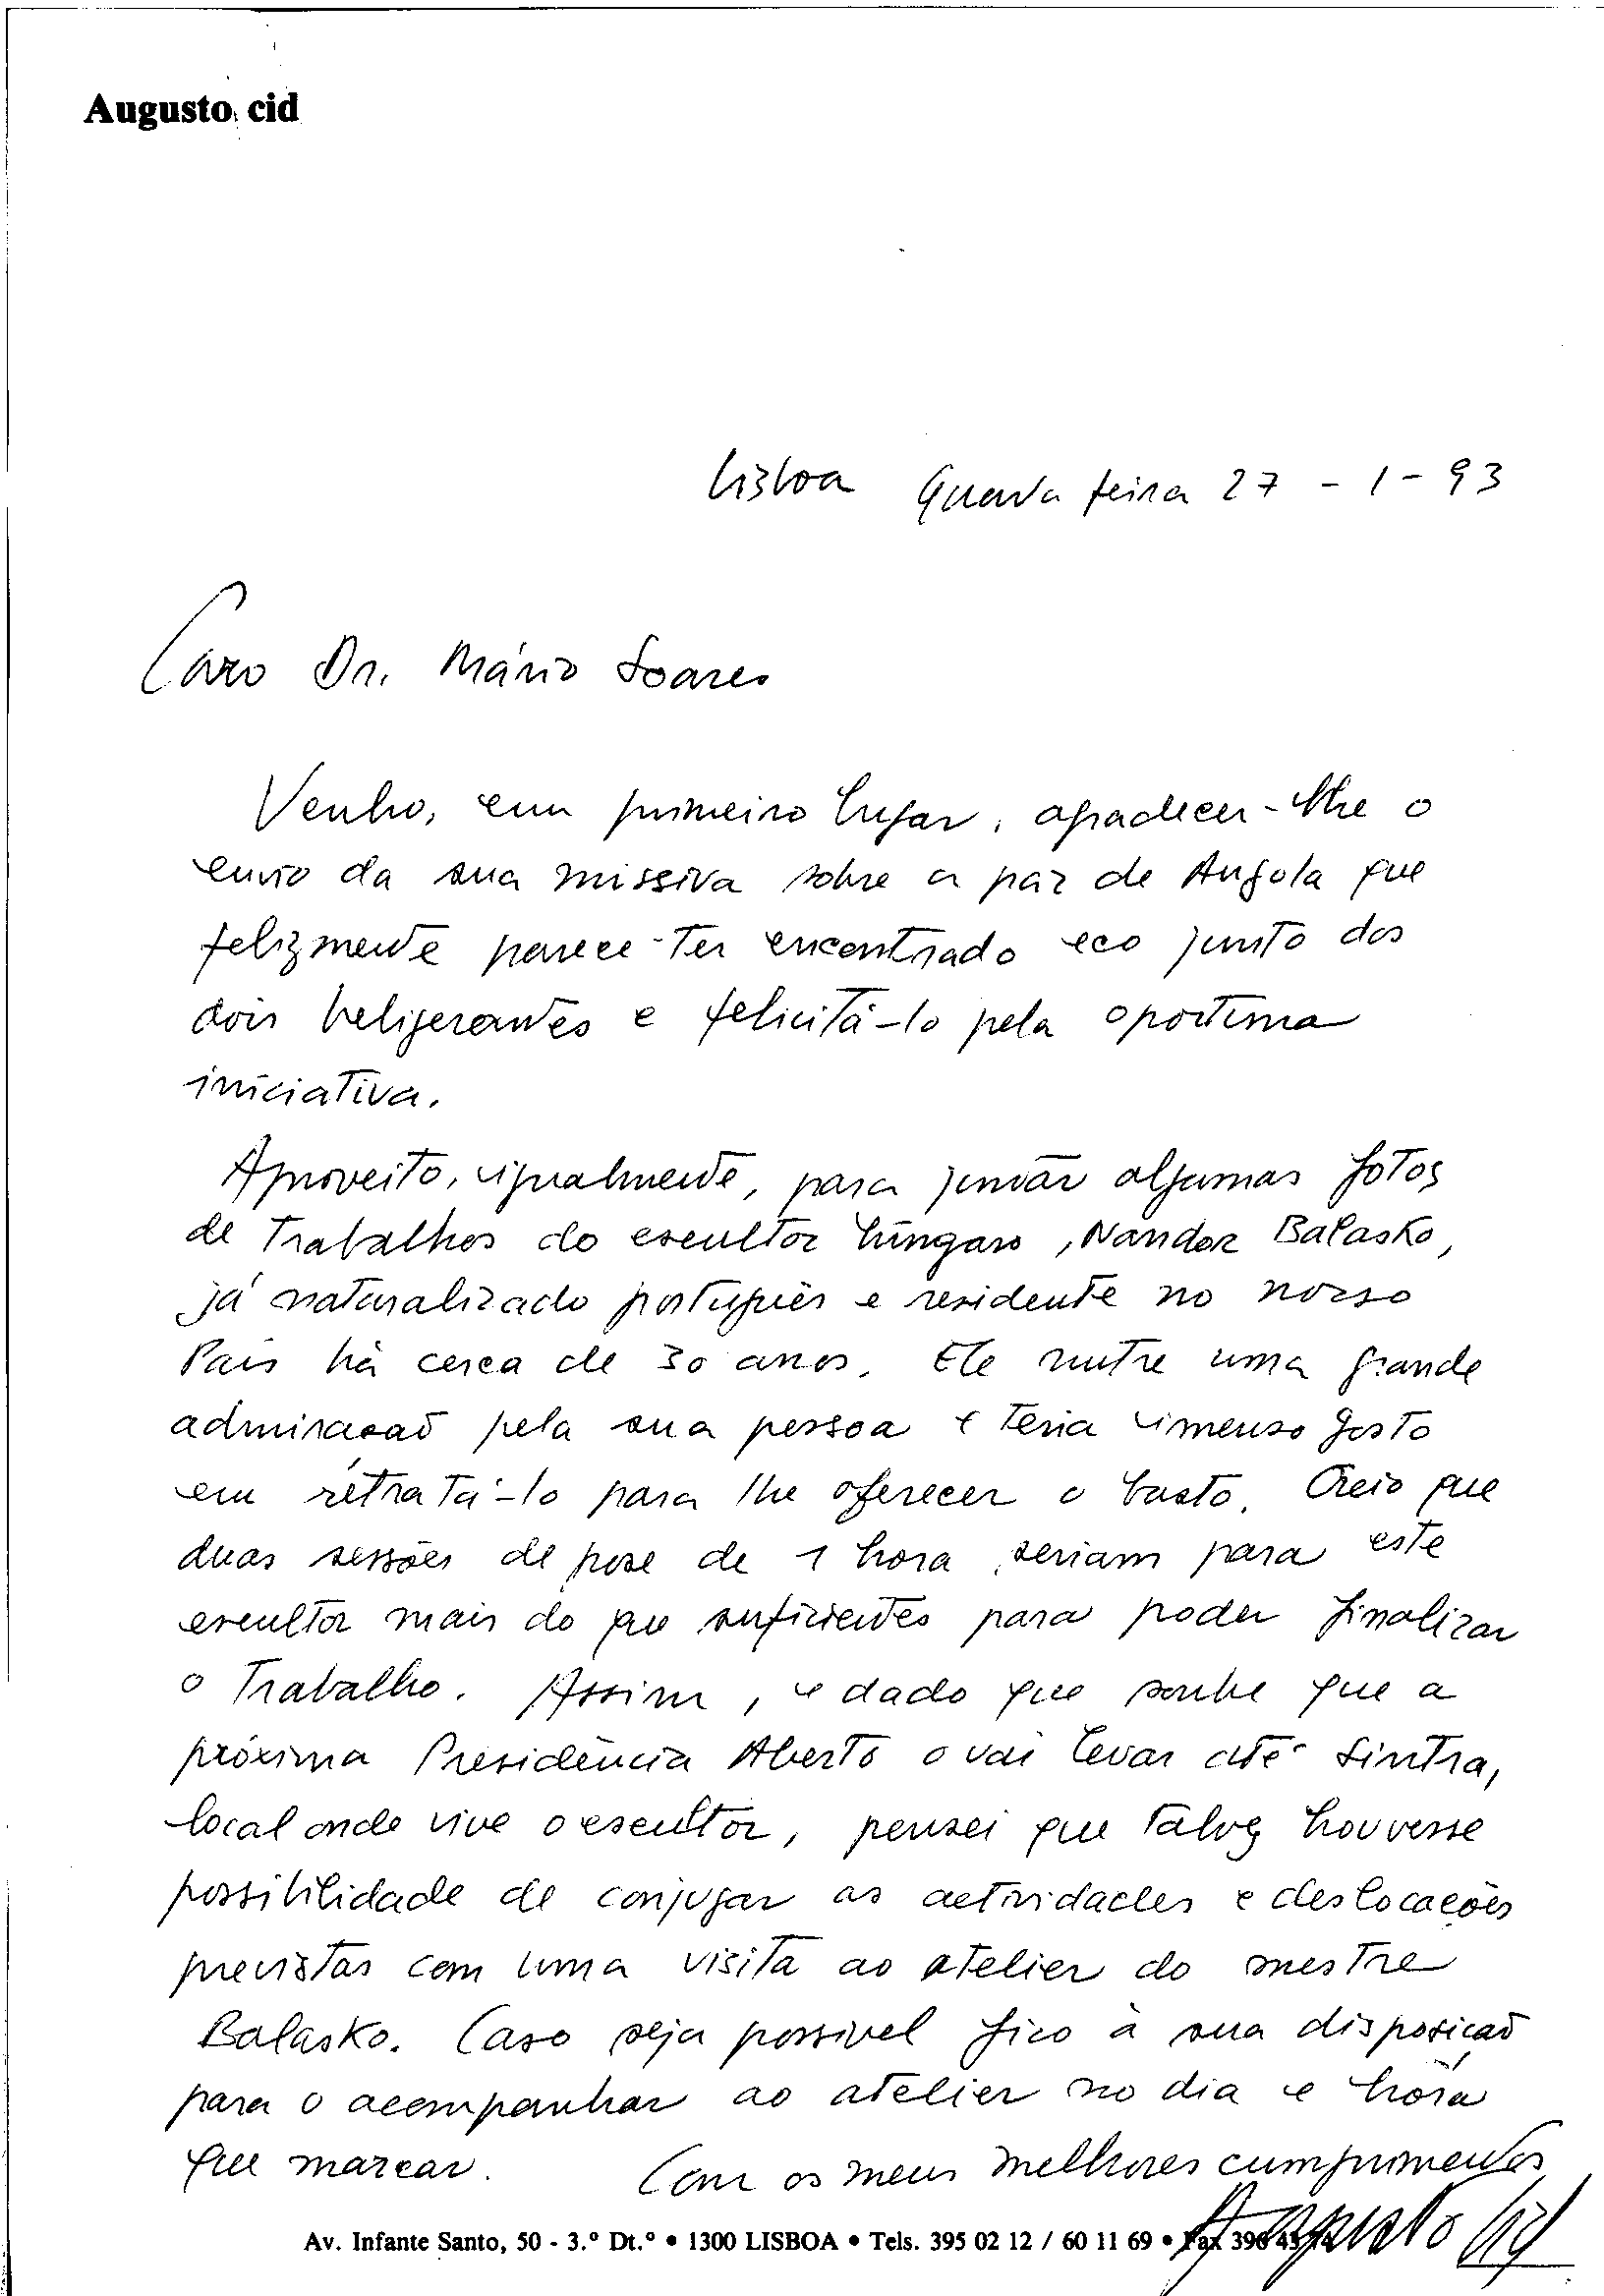 Augusto cid
Lisboa Quarta feira 27 - 1 - 93
Caro Dr. Mário Soares
Venho, em primeiro lugar, agradecer-lhe o
envio da sua missiva sobre a paz de Angola que
felizmente parece ter encontrado eco junto dos
dois beligerantes e felicitá-lo pela oportuna
iniciativa.
Aproveito, igualmente, para juntar algumas fotos
de trabalhos do escultor húngaro, Nandor Balasko,
já naturalizado português e residente no nosso
País há cerca de 30 anos. Ele nutre uma grande
admiração pela sua pessoa e teria imenso gosto
em retratá-lo para lhe oferecer o busto. Creio que
duas sessões de pose de 1 hora seriam para este
escultor mais do que suficientes para poder finalizar
o trabalho. Assim, e dado que soube que a
próxima Presidência Aberta o vai levar até Sintra,
local onde vive o escultor, pensei que talvez houvesse
possibilidade de conjugar as actividades e deslocações
previstas com uma visita ao atelier do mestre
Balasko. Caso seja possivel fico à sua disposição
para o acompanhar ao atelier no dia e hora
que marcar. Com os meus melhores cumprimentos
Augusto Cid
Av. Infante Santo, 50 - 3.º Dt.º • 1300 LISBOA • Tels. 395 02 12 / 60 11 69 • Fax 396